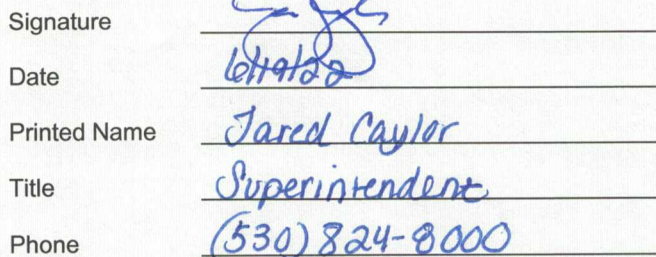 Signature
Date
Printed Name Jared Caylor
Title Superintendent
Phone (530) 824-8000